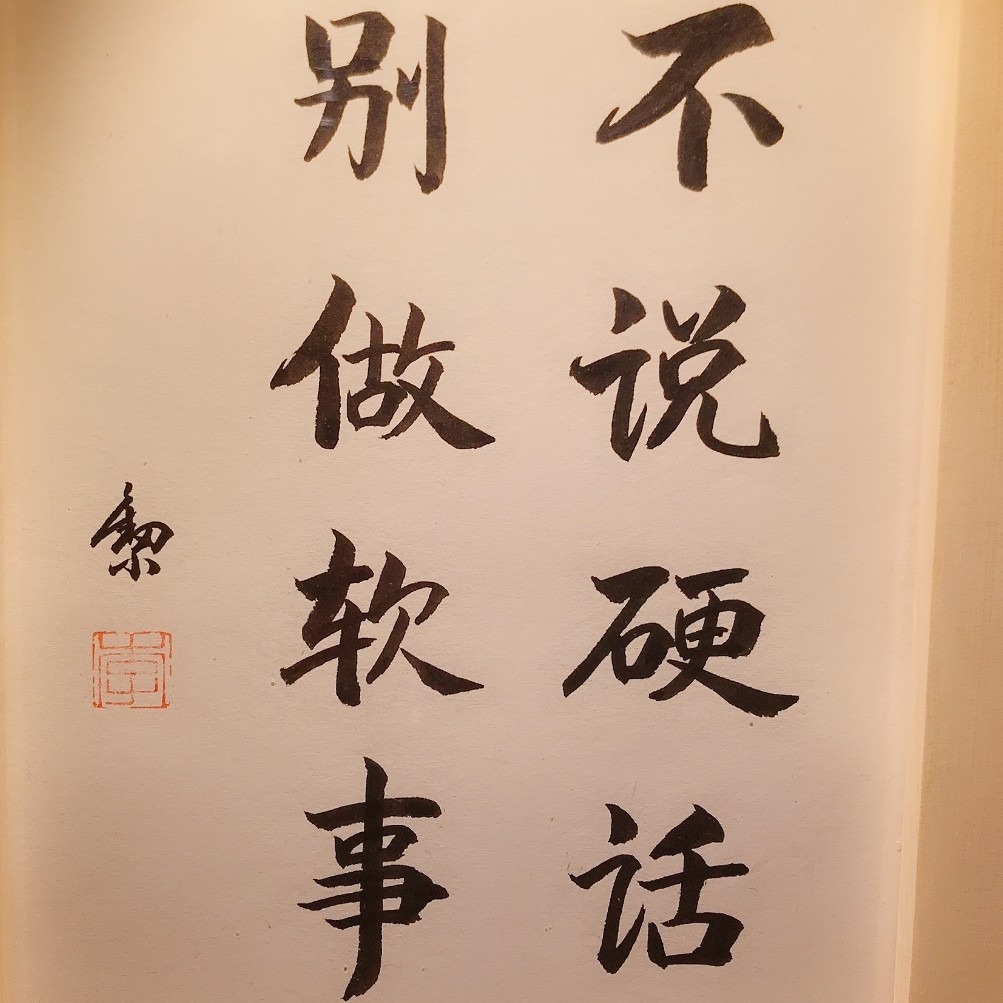 不说硬话
别做软事